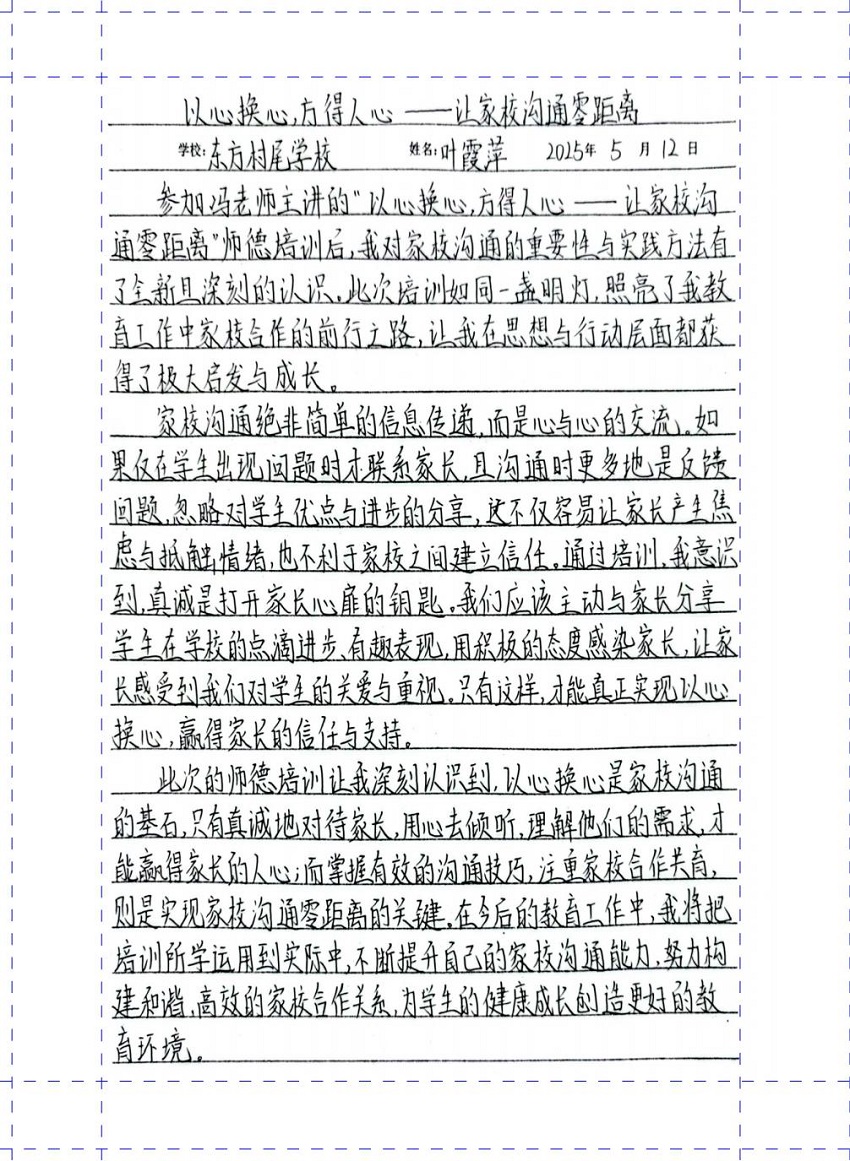 以心换心,方得人心——让家校沟通零距离
学校:东方村尾学校 姓名:叶霞萍 2025年 5 月 12 日
参加冯老师主讲的“以心换心,方得人心——让家校沟
通零距离”师德培训后,我对家校沟通的重要性与实践方法有
了全新且深刻的认识。此次培训如同一盏明灯,照亮了我教
育工作中家校合作的前行之路,让我在思想与行动层面都获
得了极大启发与成长。
家校沟通绝非简单的信息传递,而是心与心的交流。如
果仅在学生出现问题时才联系家长,且沟通时更多地是反馈
问题,忽略对学生优点与进步的分享,这不仅容易让家长产生焦
虑与抵触情绪,也不利于家校之间建立信任。通过培训,我意识
到,真诚是打开家长心扉的钥匙。我们应该主动与家长分享
学生在学校的点滴进步、有趣表现,用积极的态度感染家长,让家
长感受到我们对学生的关爱与重视。只有这样,才能真正实现以心
换心,赢得家长的信任与支持。
此次的师德培训让我深刻认识到,以心换心是家校沟通
的基石,只有真诚地对待家长,用心去倾听,理解他们的需求,才
能赢得家长的人心;而掌握有效的沟通技巧,注重家校合作共育,
则是实现家校沟通零距离的关键。在今后的教育工作中,我将把
培训所学运用到实际中,不断提升自己的家校沟通能力,努力构
建和谐、高效的家校合作关系,为学生的健康成长创造更好的教
育环境。